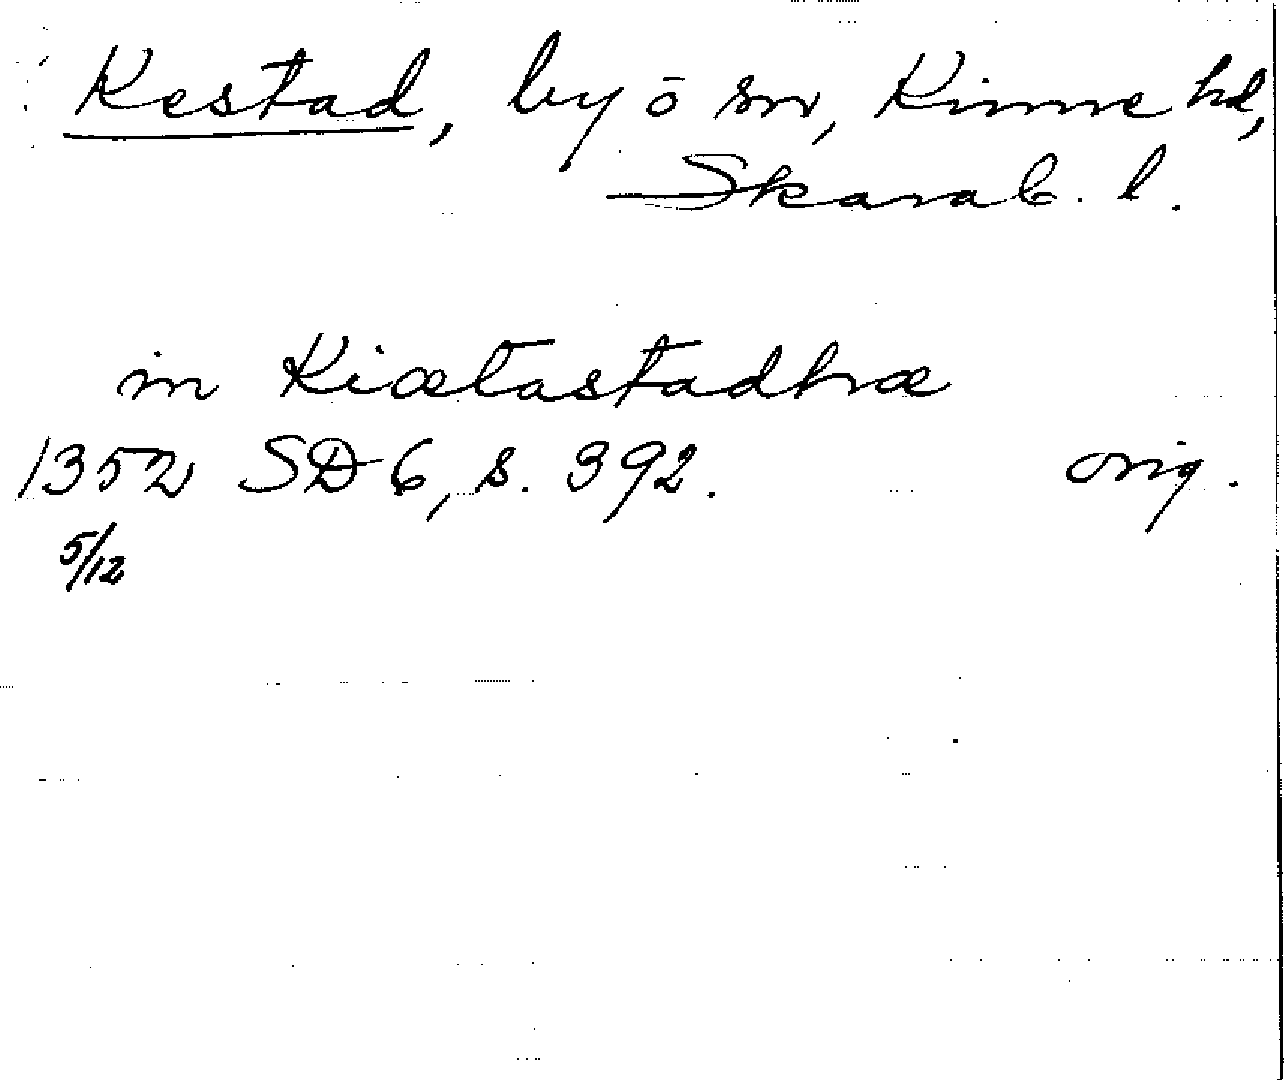 Kestad, by ō sn, Kinne hd,
Skarab. l.
in Kiætastadhræ
1352 SD 6, s. 392. orig.
5/12